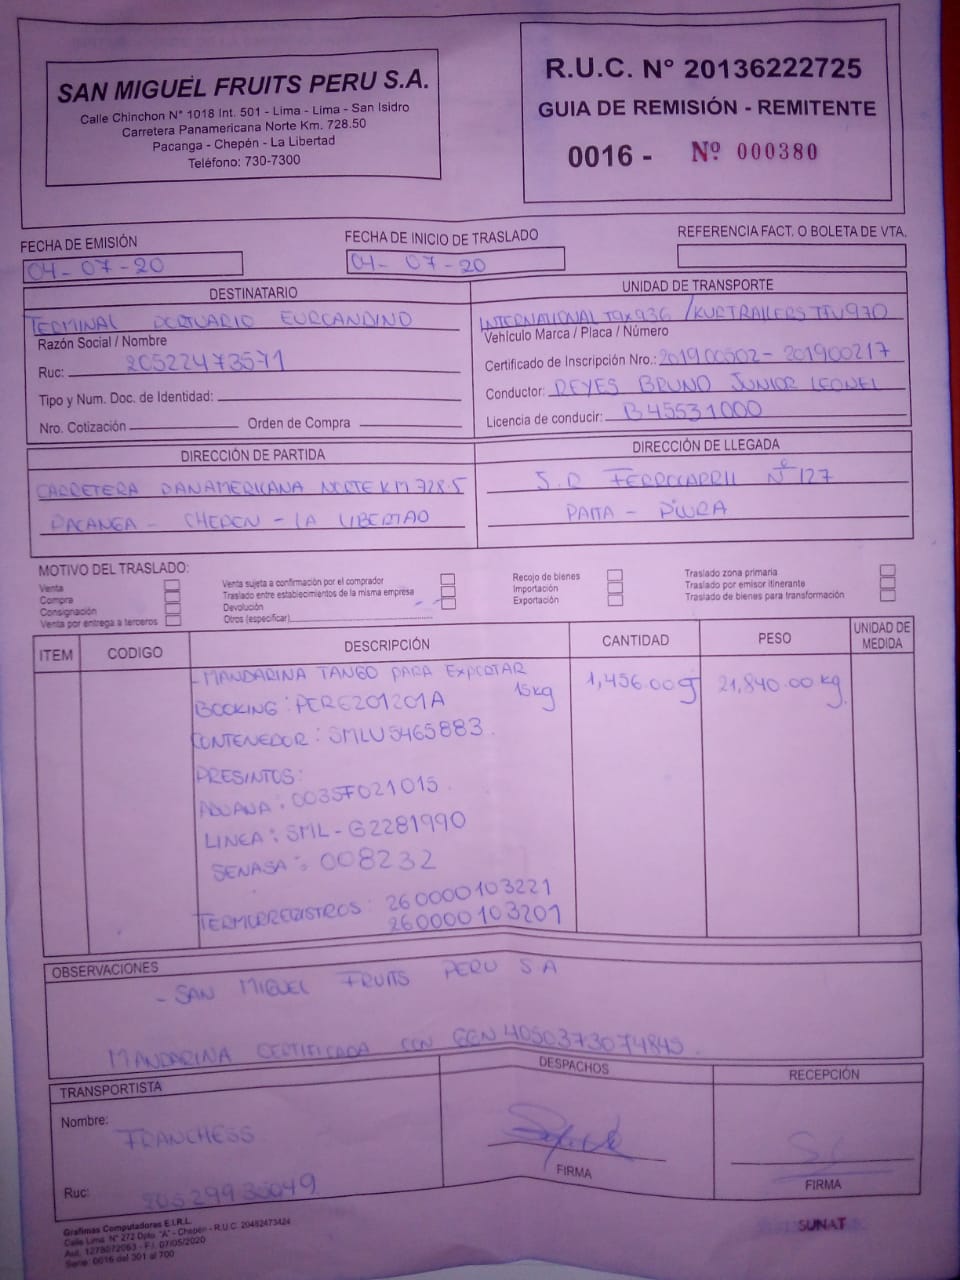 SAN MIGUEL FRUITS PERU S.A.
Calle Chinchon N° 1018 Int. 501 - Lima - Lima - San Isidro
Carretera Panamericana Norte Km. 728.50
Pacanga - Chepén - La Libertad
Teléfono: 730-7300
R.U.C. N° 20136222725
GUIA DE REMISIÓN - REMITENTE
0016 - Nº 000380
FECHA DE EMISIÓN
04-07-20
FECHA DE INICIO DE TRASLADO
04-07-20
REFERENCIA FACT. O BOLETA DE VTA.
DESTINATARIO
TERMINAL PORTUARIO EUROANDINO
Razón Social / Nombre
Ruc: 20522473571
Tipo y Num. Doc. de Identidad:
Nro. Cotización Orden de Compra
UNIDAD DE TRANSPORTE
INTERNATIONAL T9X936 / KURTRAILERS TTU970
Vehículo Marca / Placa / Número
Certificado de Inscripción Nro.: 201900502 - 201900217
Conductor: REYES BRUNO JUNIOR LEONEL
Licencia de conducir: B45531000
DIRECCIÓN DE PARTIDA
CARRETERA PANAMERICANA NORTE KM 728.5
PACANGA - CHEPEN - LA LIBERTAD
DIRECCIÓN DE LLEGADA
FERROCARRIL Nº 127
PAITA - PIURA
MOTIVO DEL TRASLADO:
Venta
Compra
Consignación
Venta por entrega a terceros
Venta sujeta a confirmación por el comprador
Traslado entre establecimientos de la misma empresa
Devolución
Otros (especificar)
Recojo de bienes
Importación
Exportación
Traslado zona primaria
Traslado por emisor itinerante
Traslado de bienes para transformación
ITEM CODIGO DESCRIPCIÓN CANTIDAD PESO UNIDAD DE MEDIDA
- MANDARINA TANGO PARA EXPORTAR 15kg 1,456.00 21,840.00 kg
BOOKING: PER6201201A
CONTENEDOR: SMLU5465883.
PRESINTOS:
ADUANA: 0035F021015.
LINEA: SML-G2281990
SENASA: 008232
TERMORREGISTROS: 260000103221
260000103201
OBSERVACIONES
- SAN MIGUEL FRUITS PERU S A
MANDARINA CERTIFICADA CON GGN 4050373074845.
TRANSPORTISTA
Nombre:
FRANCHESS
Ruc: 20529935049
DESPACHOS
FIRMA
RECEPCIÓN
FIRMA
Grafimas Computadoras E.I.R.L.
Calle Lima N° 272 Dpto. "A" - Chepén - R.U.C. 20482473424
Aut. 1278072063 - F.I. 07/05/2020
Serie: 0016 del 301 al 700
SUNAT